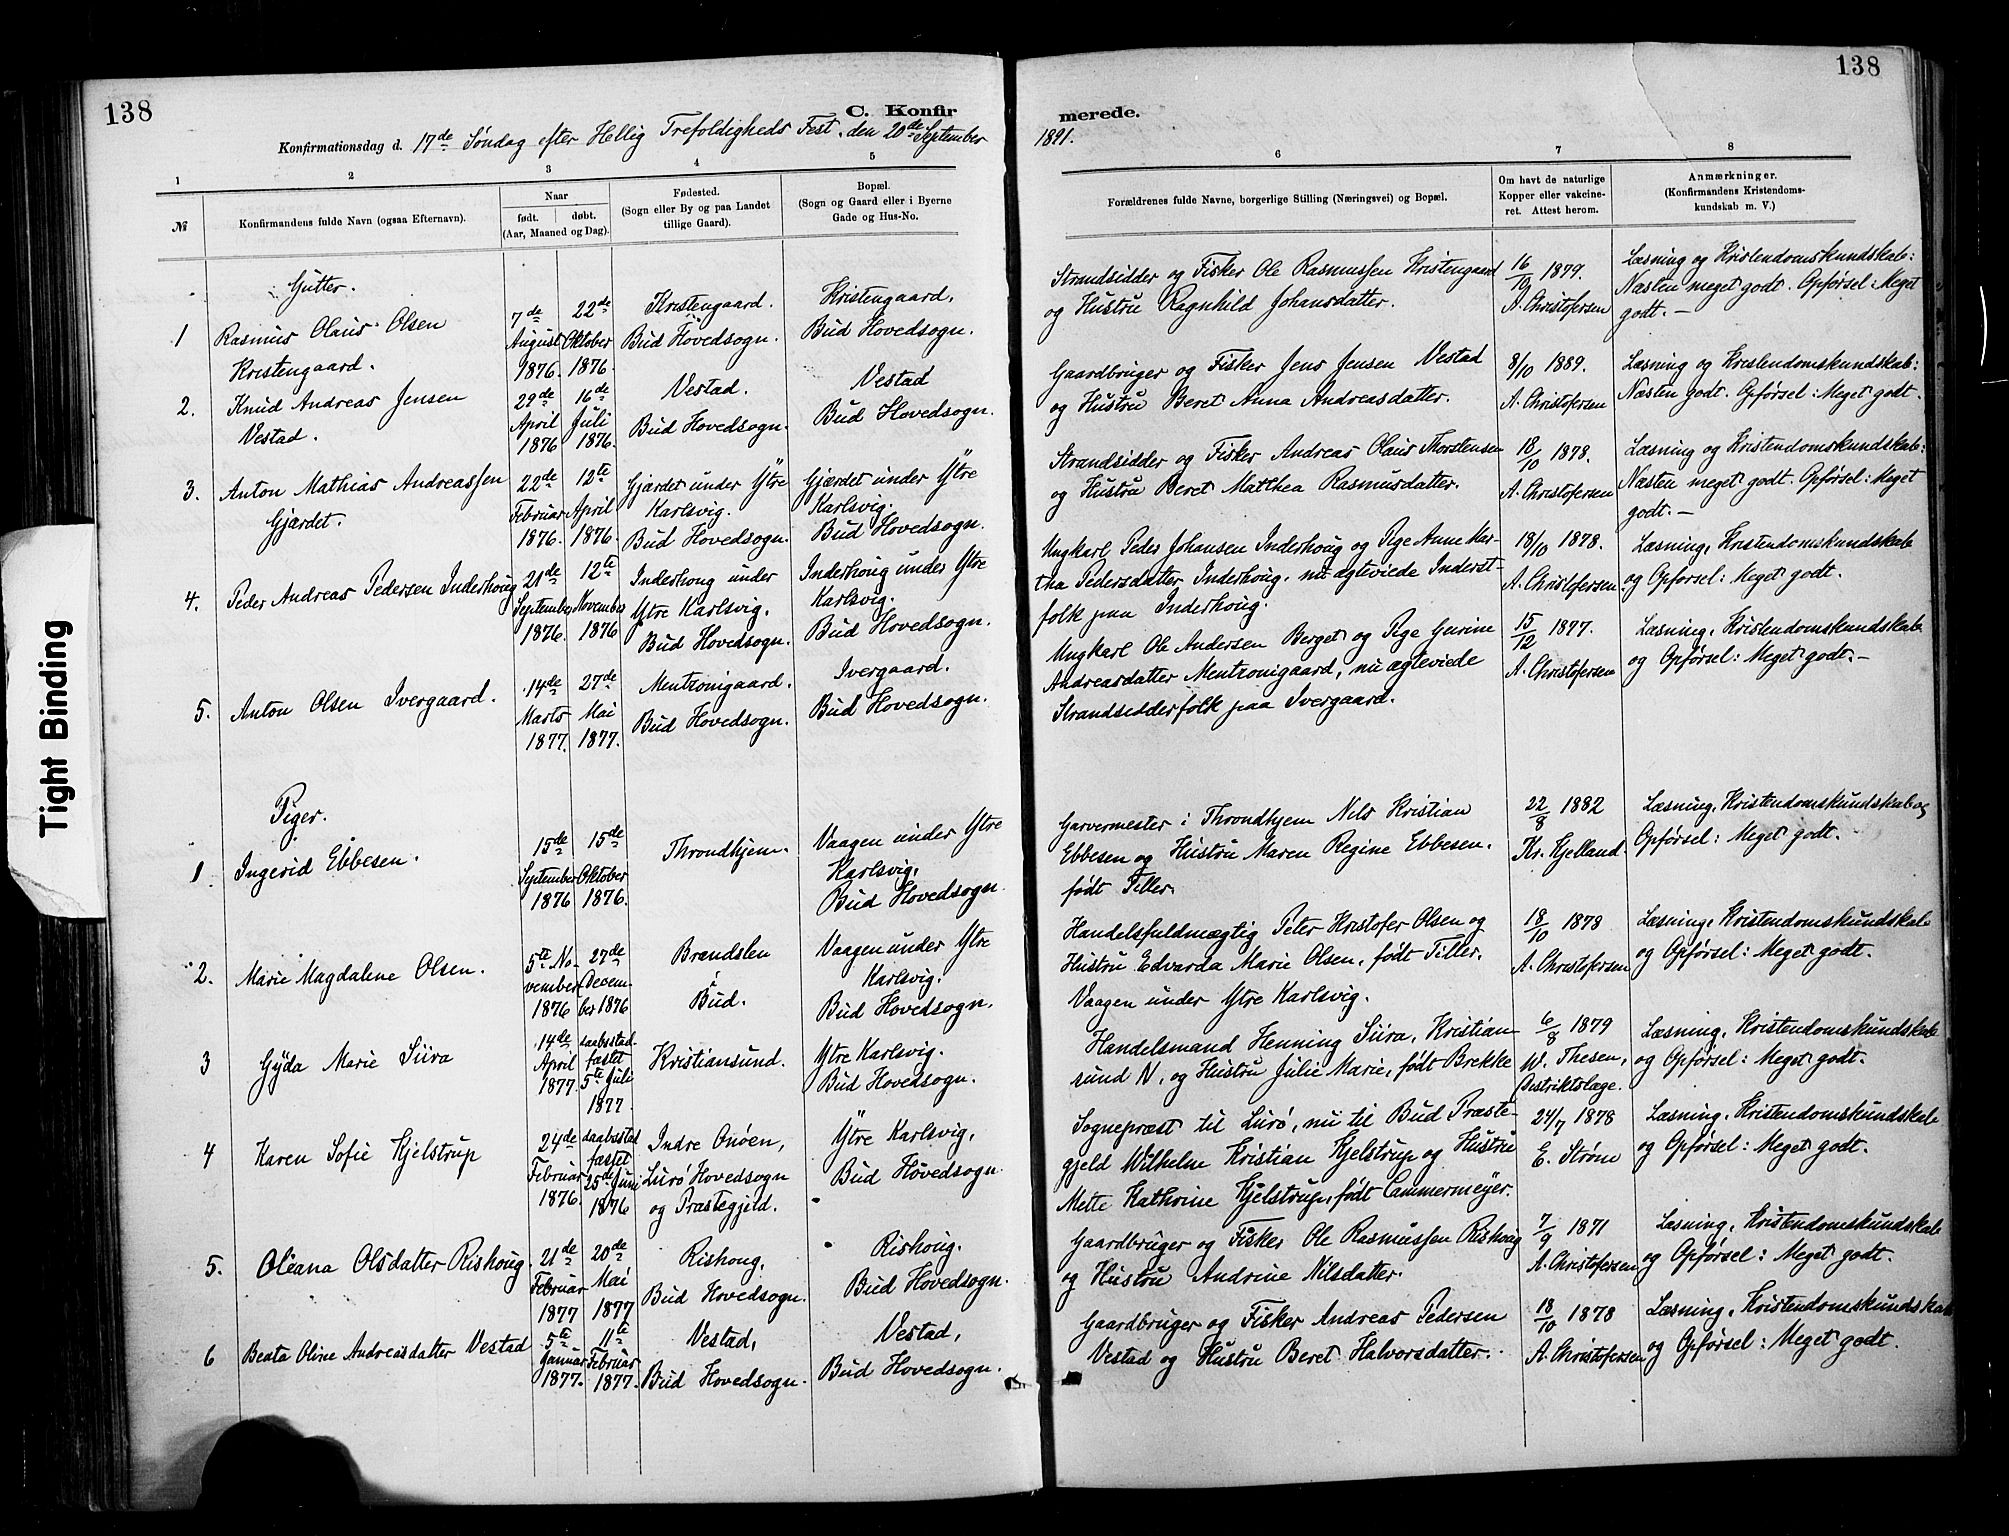 138
C. Konfir
Konfirmationsdag d. 17de Söndag efter Hellig Trefoldigheds Fest, den 20de September
1
2
3
4
5
№
Konfirmandens fulde Navn (ogsaa Efternavn).
Naar
født. døbt.
(Aar, Maaned og Dag).
Fødested.
(Sogn eller By og paa Landet
tillige Gaard).
Bopæl.
(Sogn og Gaard eller i Byerne
Gade og Hus-No.
Gutter.
1 Rasmus Olaus Olsen 7de 22de Kristengaard. Kristengaard,
Kristengaard. August Oktober Bud Hovedsogn. Bud Hovedsogn.
1876. 1876.
2. Knud Andreas Jensen 29de 16de Vestad. Vestad
Vestad. April Juli Bud Hovedsogn. Bud Hovedsogn.
1876 1876.
3. Anton Mathias Andreassen 22de 12te Gjærdet under Ytre Gjærdet under Ytre
Gjærdet. Februar April Karlsvig. Karlsvig.
1876. 1876. Bud Hovedsogn. Bud Hovedsogn.
4. Peder Andreas Pedersen Inderhoug 21de 12te Inderhoug under Inderhoug under Ytre
September November Ytre Karlsvig. Karlsvig.
1876. 1876 Bud Hovedsogn. Bud Hovedsogn.
5. Anton Olsen Ivergaard. 14de 27de Mentzonigaard. Ivergaard.
Marts Mai Bud Hovedsogn. Bud Hovedsogn.
1877. 1877.
Piger.
1 Ingerid Ebbesen. 15de 15de Throndhjem. Vaagen under Ytre
September Oktober Karlsvig.
1876 1876. Bud Hovedsogn
2. Marie Magdalene Olsen. 5te No- 27de Brændslen Vaagen under Ytre
vember Decem- i Karlsvig.
1876 ber 1876 Bud. Bud Hovedsogn.
3 Gyda Marie Siira 14de daabsstad- Kristiansund. Ytre Karlsvig.
April fæstet Bud Hovedsogn.
1877. 5te Juli
1877.
4 Karen Sofie Kjelstrup 24de daabsstad Indre Onöen, Ytre Karlsvig,
Februar fæstet Lurö Hovedsogn Bud Hovedsogn.
1876. 25de Juni og Præstegjeld.
1876
5. Oleana Olsdatter Rishoug. 21de 20de Rishoug, Rishoug.
Februar Mai Bud Hovedsogn. Bud Hovedsogn.
1877 1877
6 Beata Oline Andreasdatter Vestad 5te 11te Vestad, Vestad,
Januar Februar Bud Hovedsogn. Bud Hovedsogn.
1877. 1877.
138
merede.
1891.
6
7
8
Forældrenes fulde Navne, borgerlige Stilling (Næringsvei) og Bopæl.
Om havt de naturlige
Kopper eller vakcine-
ret. Attest herom.
Anmærkninger.
(Konfirmandens Kristendoms-
kundskab m. V.)
Strandsidder og Fisker Ole Rasmussen Kristengaard 16/10 1879. Læsning og Kristendomskundskab:
og Hustru Ragnhild Johansdatter. A. Christofersen Næsten meget godt. Opførsel: Meget
godt. —
Gaardbruger og Fisker Jens Jensen Vestad 8/10 1889. Læsning og Kristendomskundskab:
og Hustru Beret Anna Andreasdatter. A. Christofersen Næsten godt. Opførsel: Meget godt.
Strandsidder og Fisker Andreas Olaus Thorstensen 18/10 1878. Læsning og Kristendomskundskab:
og Hustru Beret Matthea Rasmusdatter. A. Christofersen Næsten meget godt. Opførsel: Meget
godt. —
Ungkarl Peder Johansen Inderhoug og Pige Anne Mar- 18/10 1878. Læsning, Kristendomskundskab
tha Pedersdatter Inderhoug, nu ægteviede Inderst- A. Christofersen. og Opførsel: Meget godt.
folk paa Inderhoug.
Ungkarl Ole Andersen Berget og Pige Gurine 15/12 1877. Læsning, Kristendomskundskab
Andreasdatter Mentzonigaard, nu ægteviede A. Christofersen og Opførsel: Meget godt. —
Strandsidderfolk paa Ivergaard.
Garvermester i Throndhjem Nils Kristian 22/8 1882 Læsning, Kristendomskundskab og
Ebbesen og Hustru Maren Regine Ebbesen. Kr. Kjelland. Opførsel: Meget godt.
født Tiller.
Handelsfuldmægtig Peter Kristofer Olsen og 18/10 1878 Læsning, Kristendomskundskab
Hustru Edvarda Marie Olsen, født Tiller. A. Christofersen og Opførsel: Meget godt.
Vaagen under Ytre Karlsvig.
Handelsmand Henning Siira, Kristian- 6/8 1879 Læsning, Kristendomskundskab
sund N, og Hustru Julie Marie, født Brekke W. Thesen, og Opførsel: Meget godt.
Distriktslæge.
Sognepræst til Lurö, nu til Bud Præste- 24/7 1878 Læsning, Kristendomskundskab
gjeld Wilhelm Kristian Kjelstrup og Hustru E. Strøm og Opførsel: Meget godt.
Mette Kathrine Kjelstrup, født Cammermeyer.
Gaardbruger og Fisker Ole Rasmussen Rishoug 7/9 1871 Læsning, Kristendomskundskab
og Hustru Andrine Nilsdatter. A. Christofersen og Opførsel: Meget godt.
Gaardbruger og Fisker Andreas Pedersen 18/10 1878 Læsning, Kristendomskundskab
Vestad og Hustru Beret Halvorsdatter. A. Christofersen og Opførsel: Meget godt.
Tight Binding